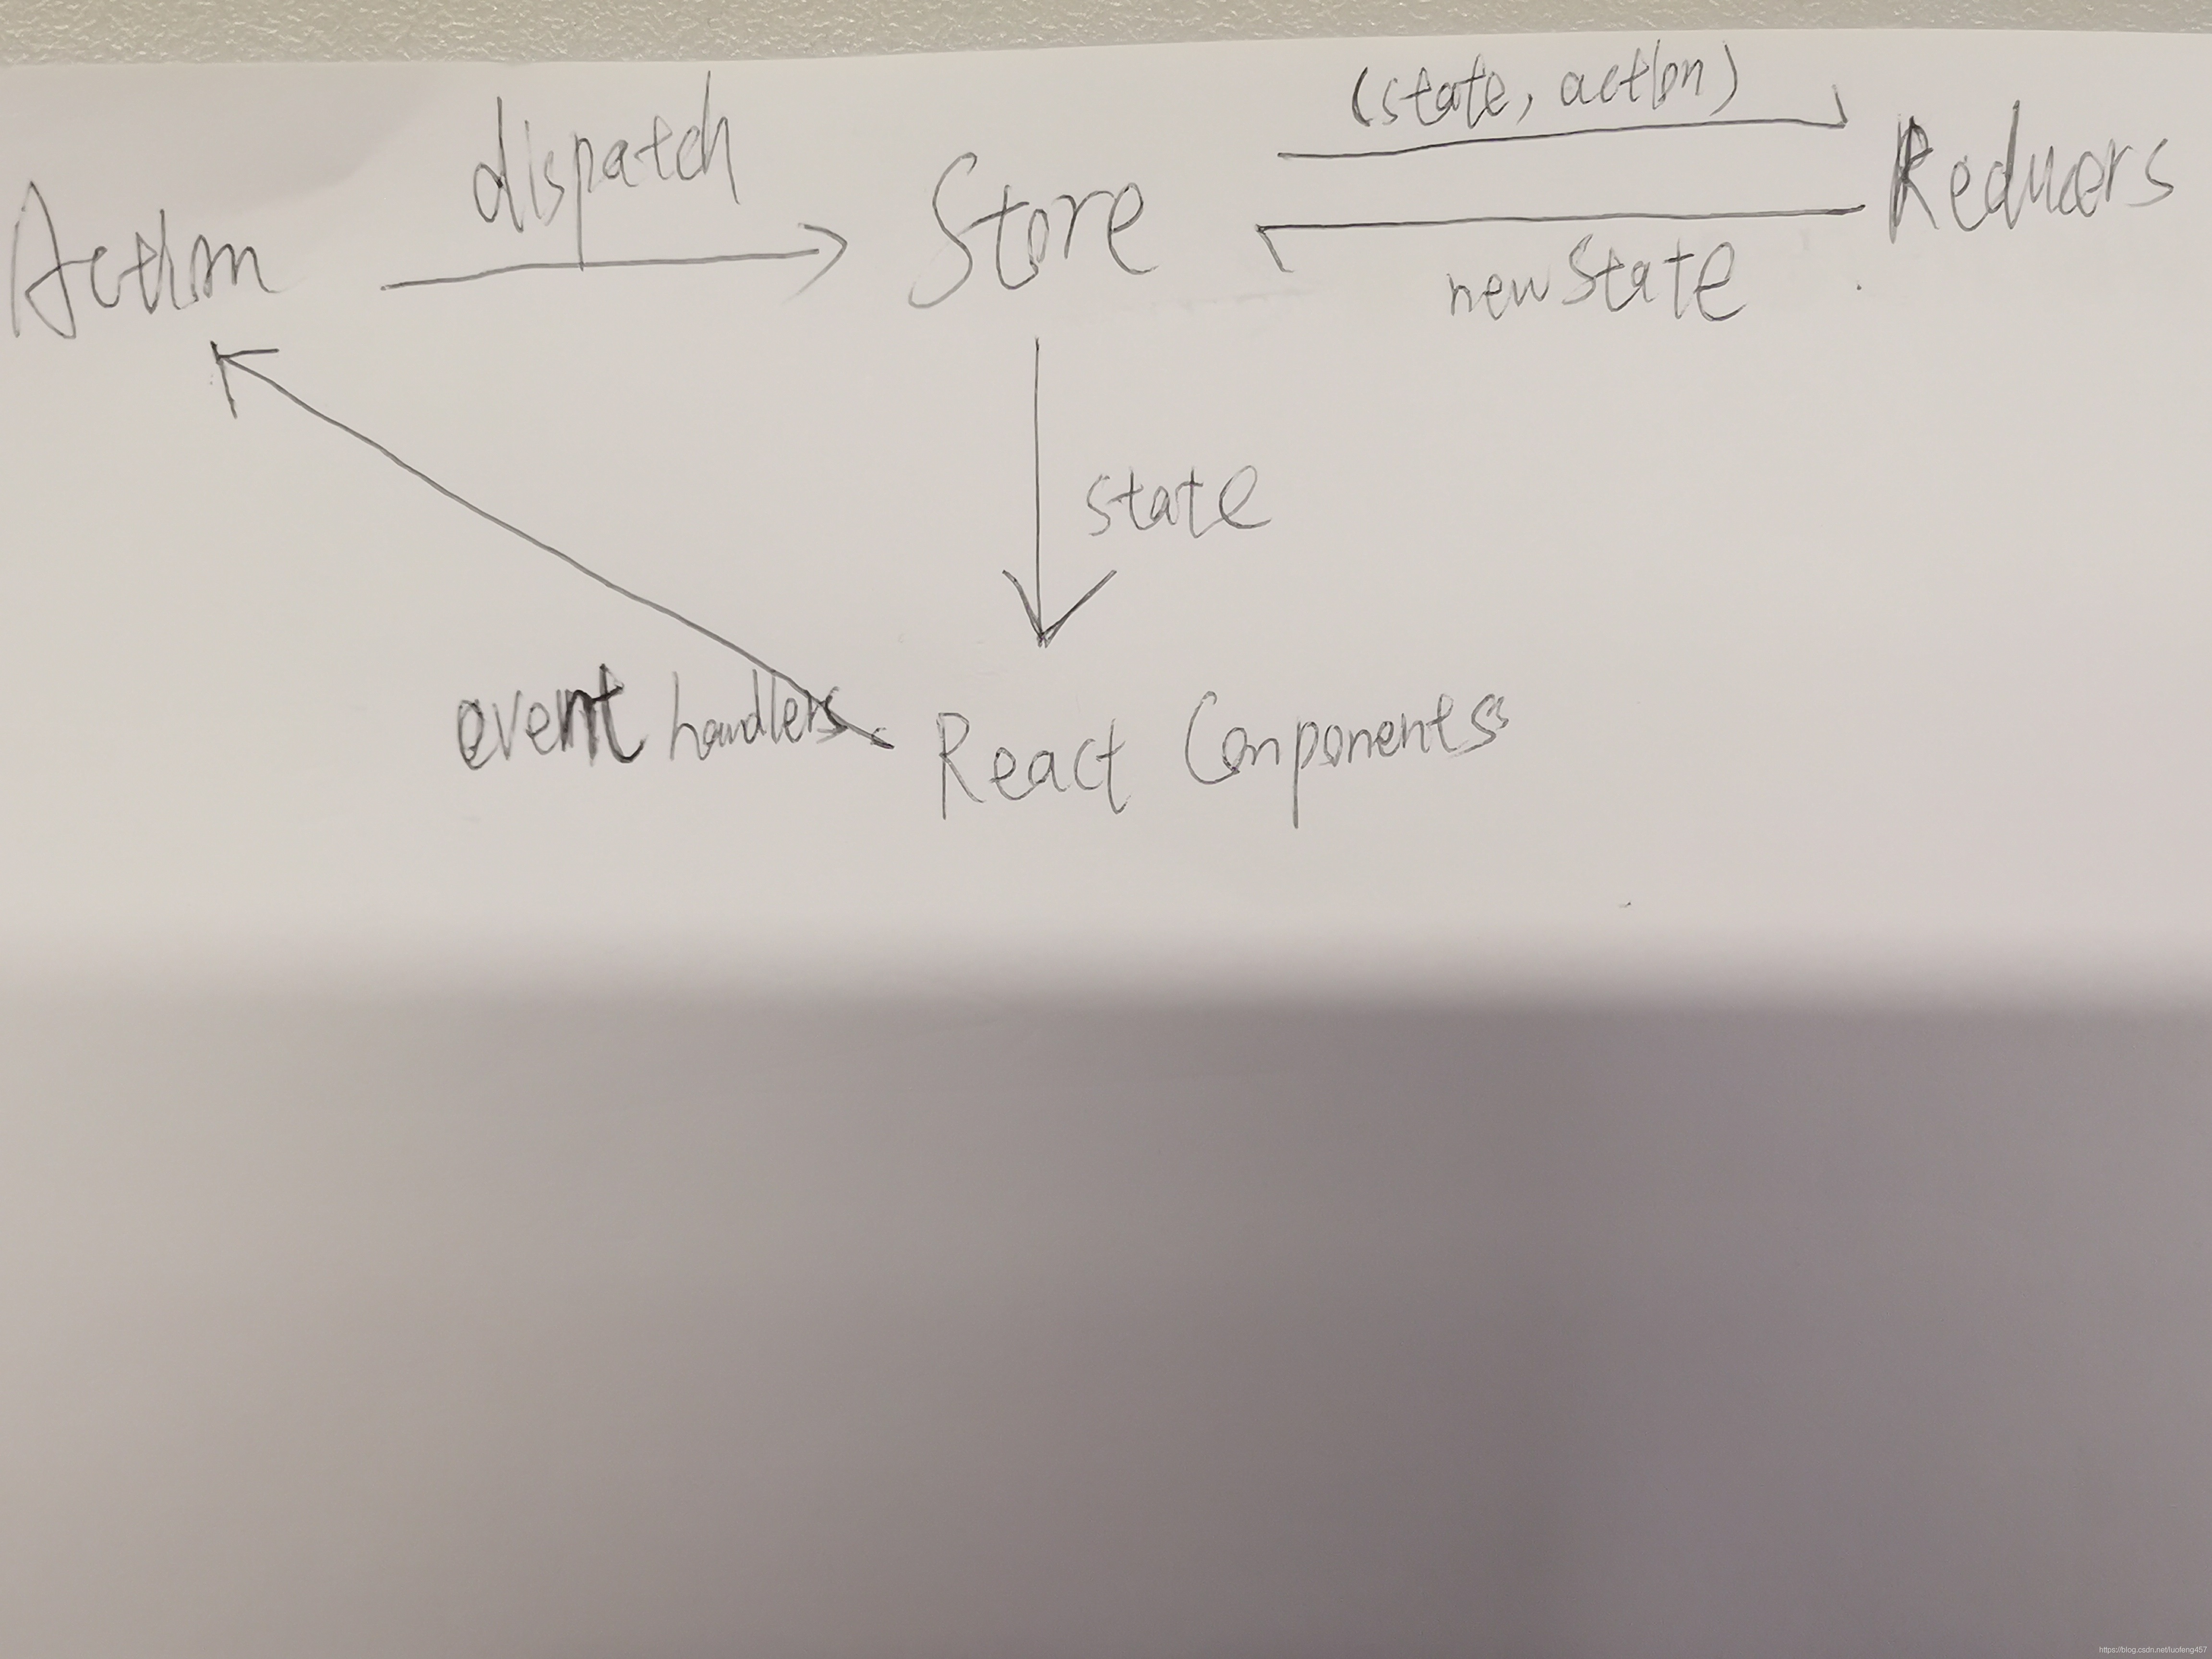 (state, action)
dispatch
Action
Store
Reducers
newState
state
event handlers
React Components
https://blog.csdn.net/luofeng457